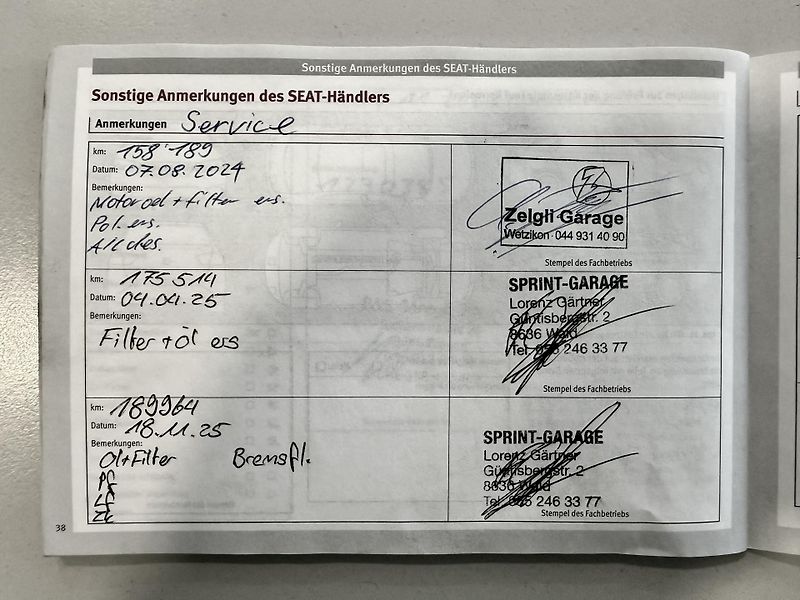 Sonstige Anmerkungen des SEAT-Händlers
Sonstige Anmerkungen des SEAT-Händlers
Anmerkungen Service
km: 158'189
Datum: 07.08.2024
Bemerkungen:
Motoroel + Filter ers.
Pol. ers.
All des.
Zelgli Garage
Wetzikon · 044 931 40 90
Stempel des Fachbetriebs
km: 175514
Datum: 04.04.25
Bemerkungen:
Filter + Öl ers
SPRINT-GARAGE
Lorenz Gärtner
Güntisbergstr. 2
8636 Wald
Tel. 055 246 33 77
Stempel des Fachbetriebs
km: 189964
Datum: 18.11.25
Bemerkungen:
Öl+Filter Bremsfl.
PF
LF
ZK
SPRINT-GARAGE
Lorenz Gärtner
Güntisbergstr. 2
8636 Wald
Tel. 055 246 33 77
Stempel des Fachbetriebs
38